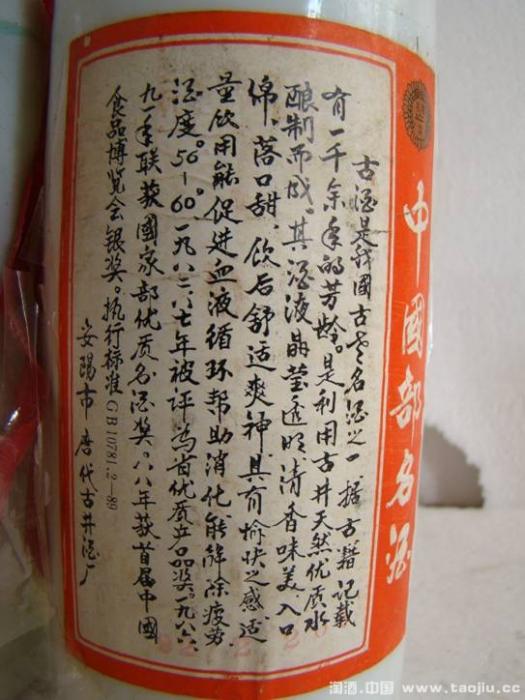 中國部名酒
古酒是我國古老名酒之一 据古籍记载
有一千余年的芳龄。是利用古井天然优质水
酿制而成。其酒液晶莹透明清香味美入口
绵、落口甜、饮后舒适爽神具有愉快之感适
量饮用能促进血液循环帮助消化能解除疲劳
酒度。56-60。一九八二八七年被评为省优质产品奖。一九八六
九一年联获國家部优质名酒奖。八八年获首届中國
食品博览会银奖。执行标准GB10781.2-89
安陽市 唐代古井酒厂
淘酒.中国 www.taojiu.com